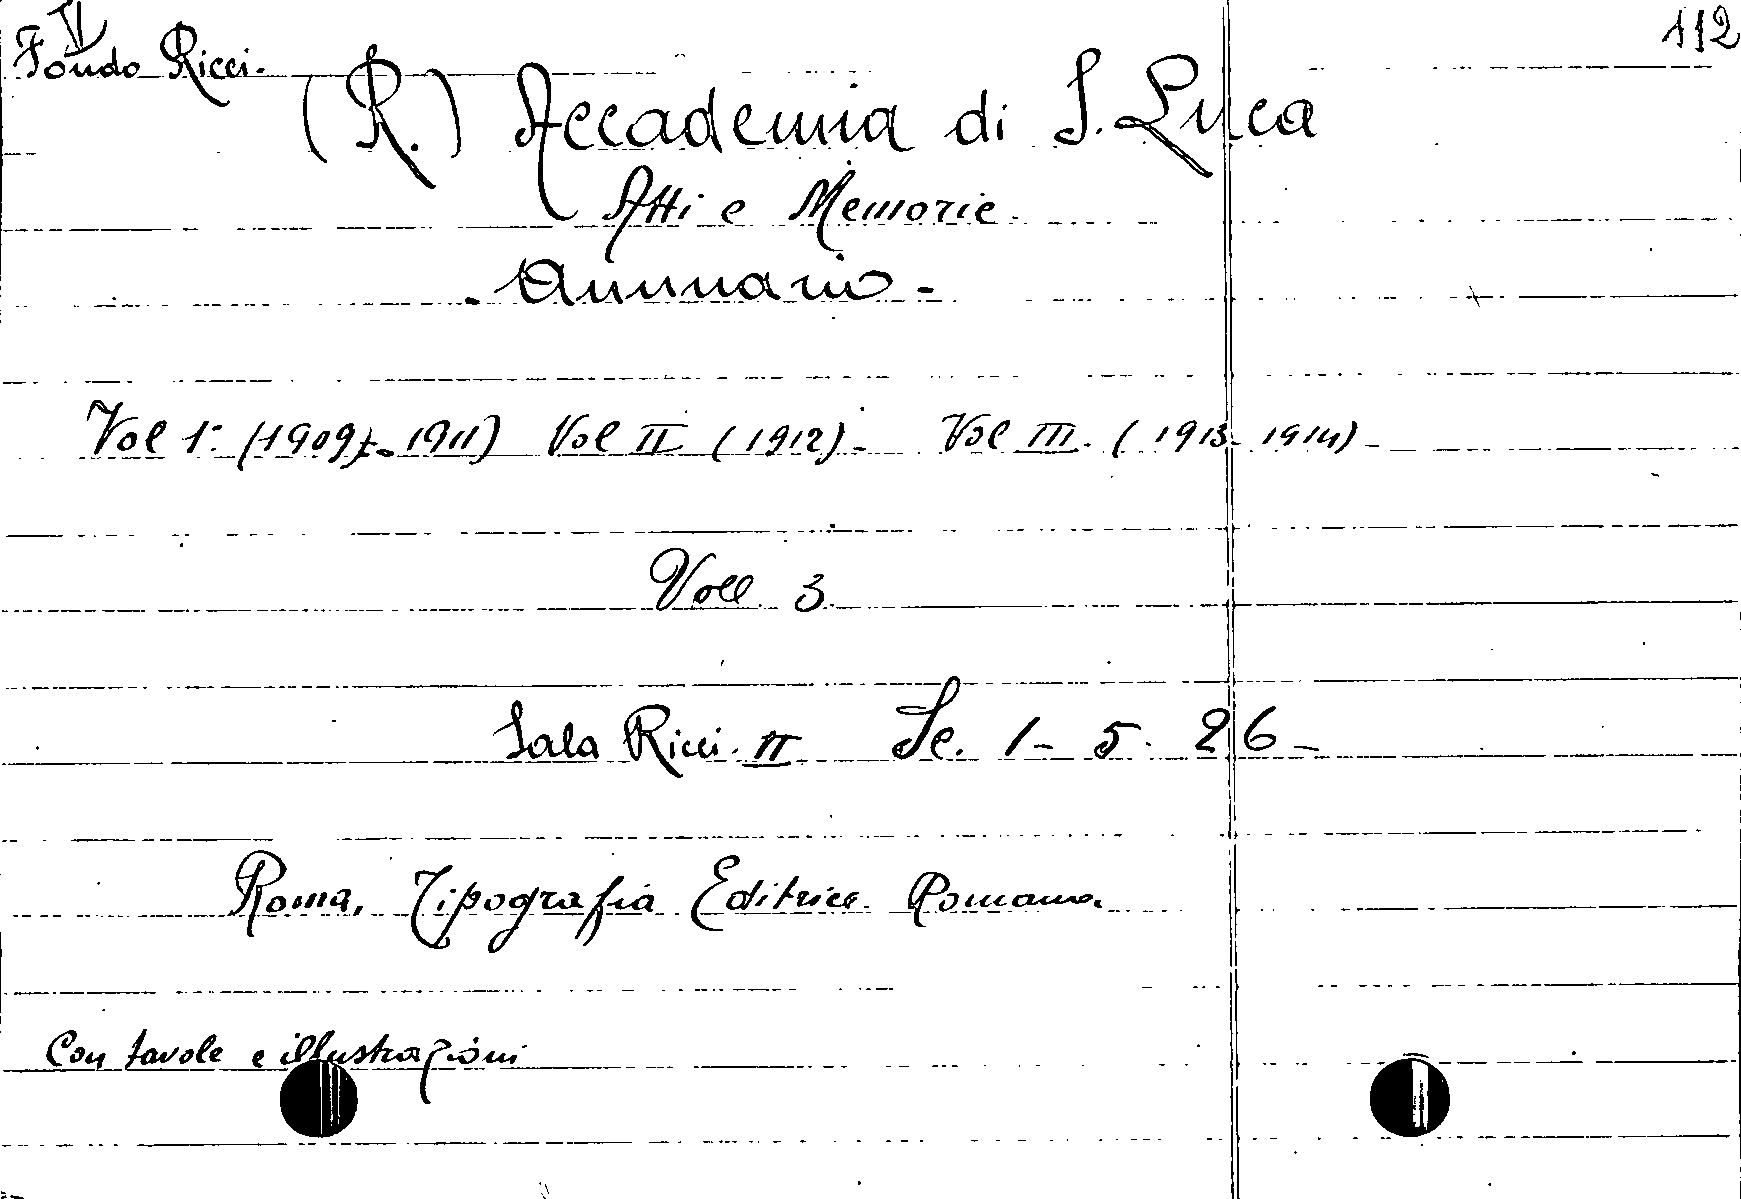 II 112
Fondo Ricci.
(R.) Accademia di S. Luca
Atti e Memorie.
- Annuario -
Vol 1º (1909)-1911) Vol II (1912)- Vol III. (1913-1914)-
Voll. 3.
Sala Ricci. II Sc. 1-5. 26-
Roma, Tipografia Editrice Romana.
Con tavole e illustrazioni